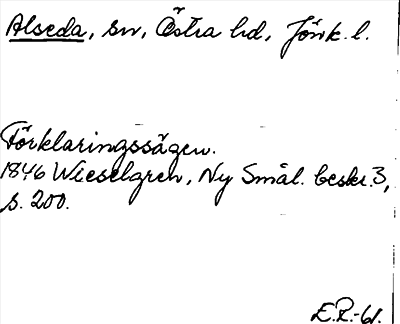 Alseda, sn, Östra hd, Jönk. l.
Förklaringssägen.
1846 Wieselgren, Ny Smål. beskr. 3,
s. 200.
E.P.-61.